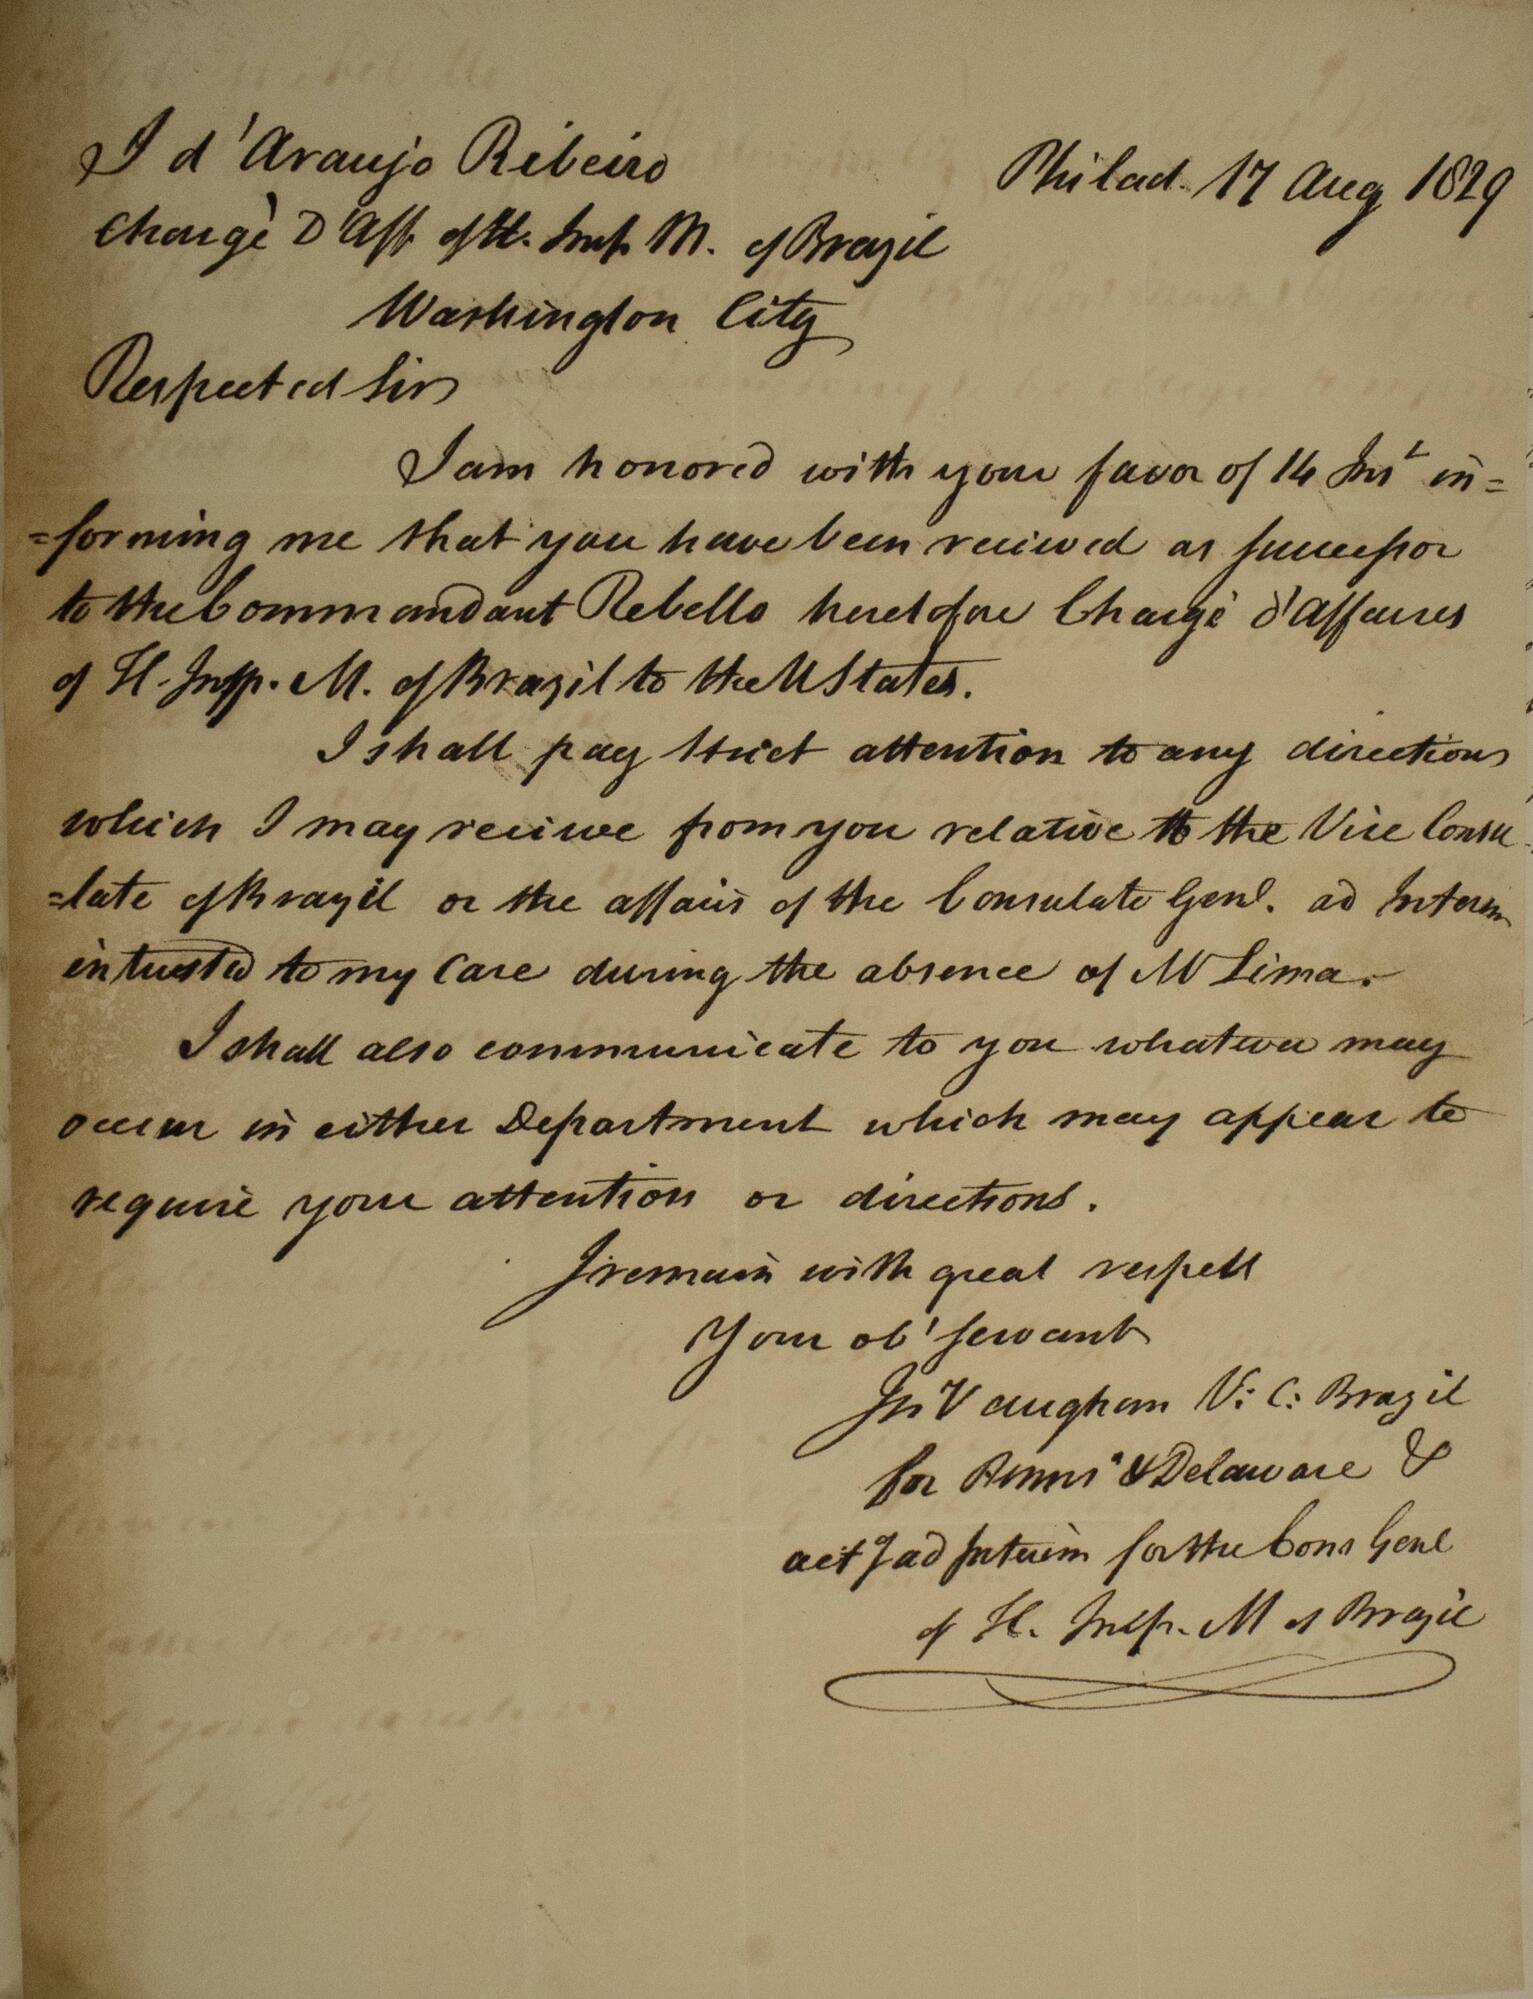 J d'Araujo Ribeiro
Philad. 17 Aug 1829
Chargè D'Aff. of H. Imp M. of Brazil
Washington City
Respected Sir
I am honored with your favor of 14 Inst in=
=forming me that you have been recieved as Successor
to the Commandant Rebello heretofore Chargè d'Affaires
of H. Imp. M. of Brazil to the UStates.
I shall pay Strict attention to any directions
which I may recieve from you relative to the Vice Consu=
=late of Brazil or the affairs of the Consulate Genl. ad Interim
intrusted to my Care during the absence of Mr Lima.
I shall also communicate to you whatever may
occur in either Department which may appear to
require your attention or directions.
I remain with great respect
Your obt Servant
Jn Vaughan V: C: Brazil
for Penns.a & Delaware &
actg ad Interim for the Cons Genl
of H. Imp. M of Brazil